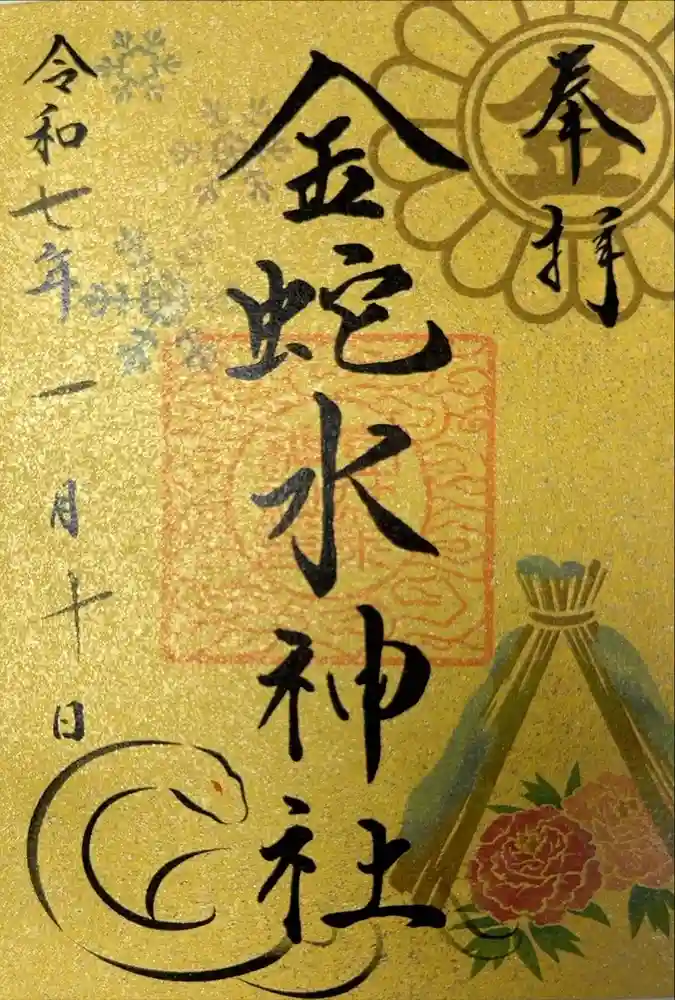 奉拝
金
金蛇水神社
令和七年一月十日